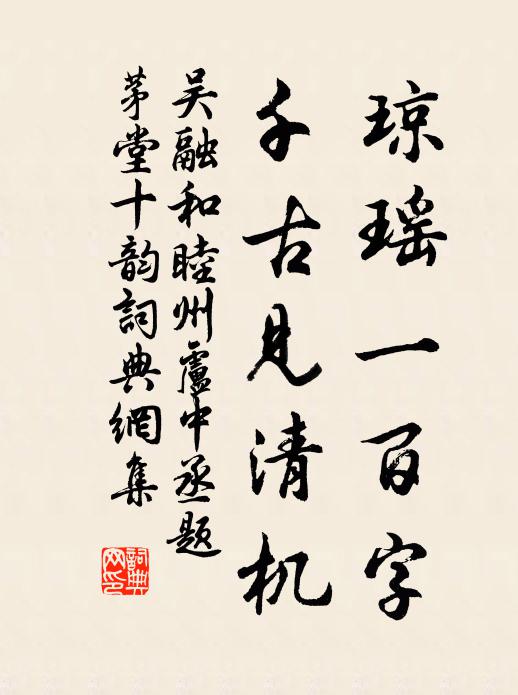 琼瑶一百字
千古见清机
吴融和睦州盧中丞题
茅堂十韵詞典網集
詞典网印